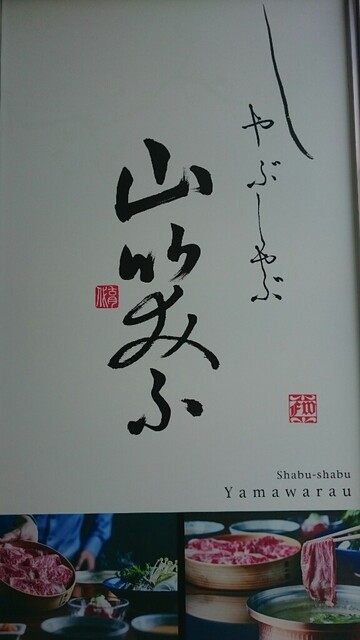 しゃぶしゃぶ
山笑ふ
Shabu-shabu
Yamawarau